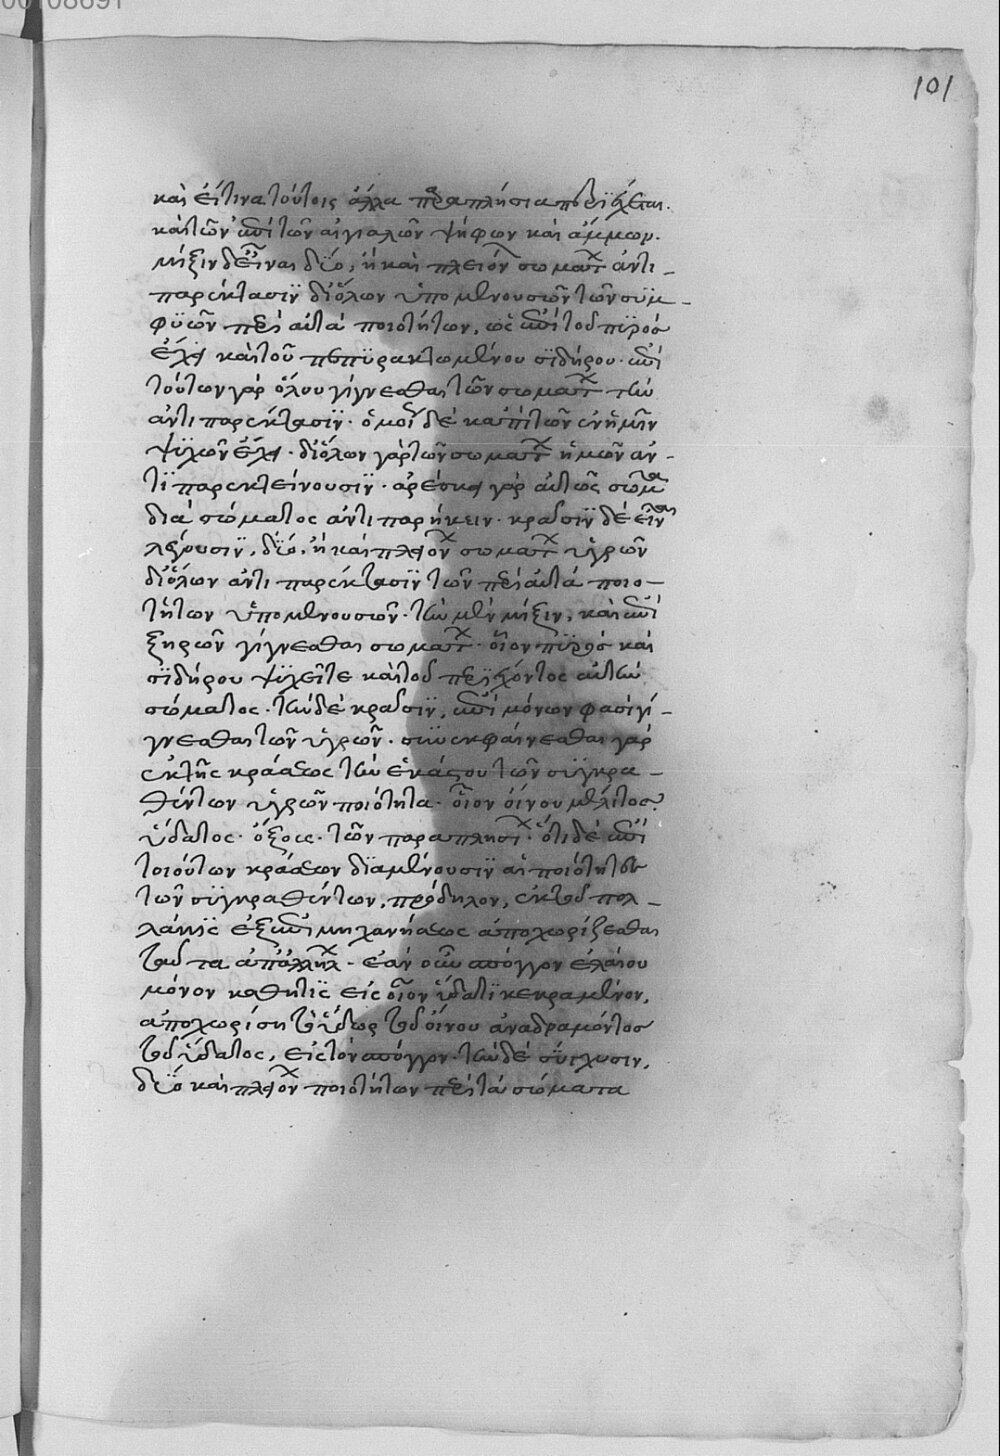 101
καὶ εἴ τινα τούτοις ἄλλα παραπλήσια περιέχεται.
καὶ τῶν ἐπὶ τῶν αἰγιαλῶν ψήφων καὶ ἄμμων.
μίξιν δ' εἶναι δύο, ἢ καὶ πλειόνων σωμάτων ἀντι-
παρέκτασιν δι' ὅλων ὑπομενουσῶν τῶν συμ-
φυῶν περὶ αὐτὰ ποιοτήτων, ὡς ἐπὶ τοῦ πυρὸς
ἔχει καὶ τοῦ πεπυρακτωμένου σιδήρου. ἐπὶ
τούτων γὰρ ὅλου γίγνεσθαι τῶν σωμάτων τὴν
ἀντιπαρέκτασιν. ὁμοίως δὲ κἀπὶ τῶν ἐν ἡμῖν
ψυχῶν ἔχει. δι' ὅλων γὰρ τῶν σωμάτων ἡμῶν ἀν-
τιπαρεκτείνουσιν. ἀρέσκει γὰρ αὐτοῖς σῶμα
διὰ σώματος ἀντιπαρήκειν. κρᾶσιν δὲ εἶναι
λέγουσιν, δύο, ἢ καὶ πλειόνων σωμάτων ὑγρῶν
δι' ὅλων ἀντιπαρέκτασιν τῶν περὶ αὐτὰ ποιο-
τήτων ὑπομενουσῶν. τὴν μὲν μίξιν, καὶ ἐπὶ
ξηρῶν γίγνεσθαι σωμάτων. οἷον πυρὸς καὶ
σιδήρου ψυχῆς τε καὶ τοῦ περιέχοντος αὐτὴν
σώματος. τὴν δὲ κρᾶσιν, ἐπὶ μόνων φασὶ γί-
γνεσθαι τῶν ὑγρῶν. συνεκφαίνεσθαι γὰρ
ἐκ τῆς κράσεως τὴν ἑκάστου τῶν συγκρα-
θέντων ὑγρῶν ποιότητα. οἷον οἴνου μέλιτος
ὕδατος. ὄξους. τῶν παραπλησίων. ὅτι δὲ ἐπὶ
τοιούτων κράσεων διαμένουσιν αἱ ποιότητες
τῶν συγκραθέντων, πρόδηλον, ἐκ τοῦ πολ-
λάκις ἐξ ἐπιμηχανήσεως ἀποχωρίζεσθαι
ταῦτα ἀπ' ἀλλήλων. ἐὰν οὖν σπόγγον ἐλαίου
μόνον καθῇ τις εἰς οἶνον ὕδατι κεκραμένον,
ἀποχωρίσῃ τὸ ὕδωρ τοῦ οἴνου ἀναδραμόντος
τοῦ ὕδατος, εἰς τὸν σπόγγον. τὴν δὲ σύγχυσιν,
δύο καὶ πλειόνων ποιοτήτων περὶ τὰ σώματα